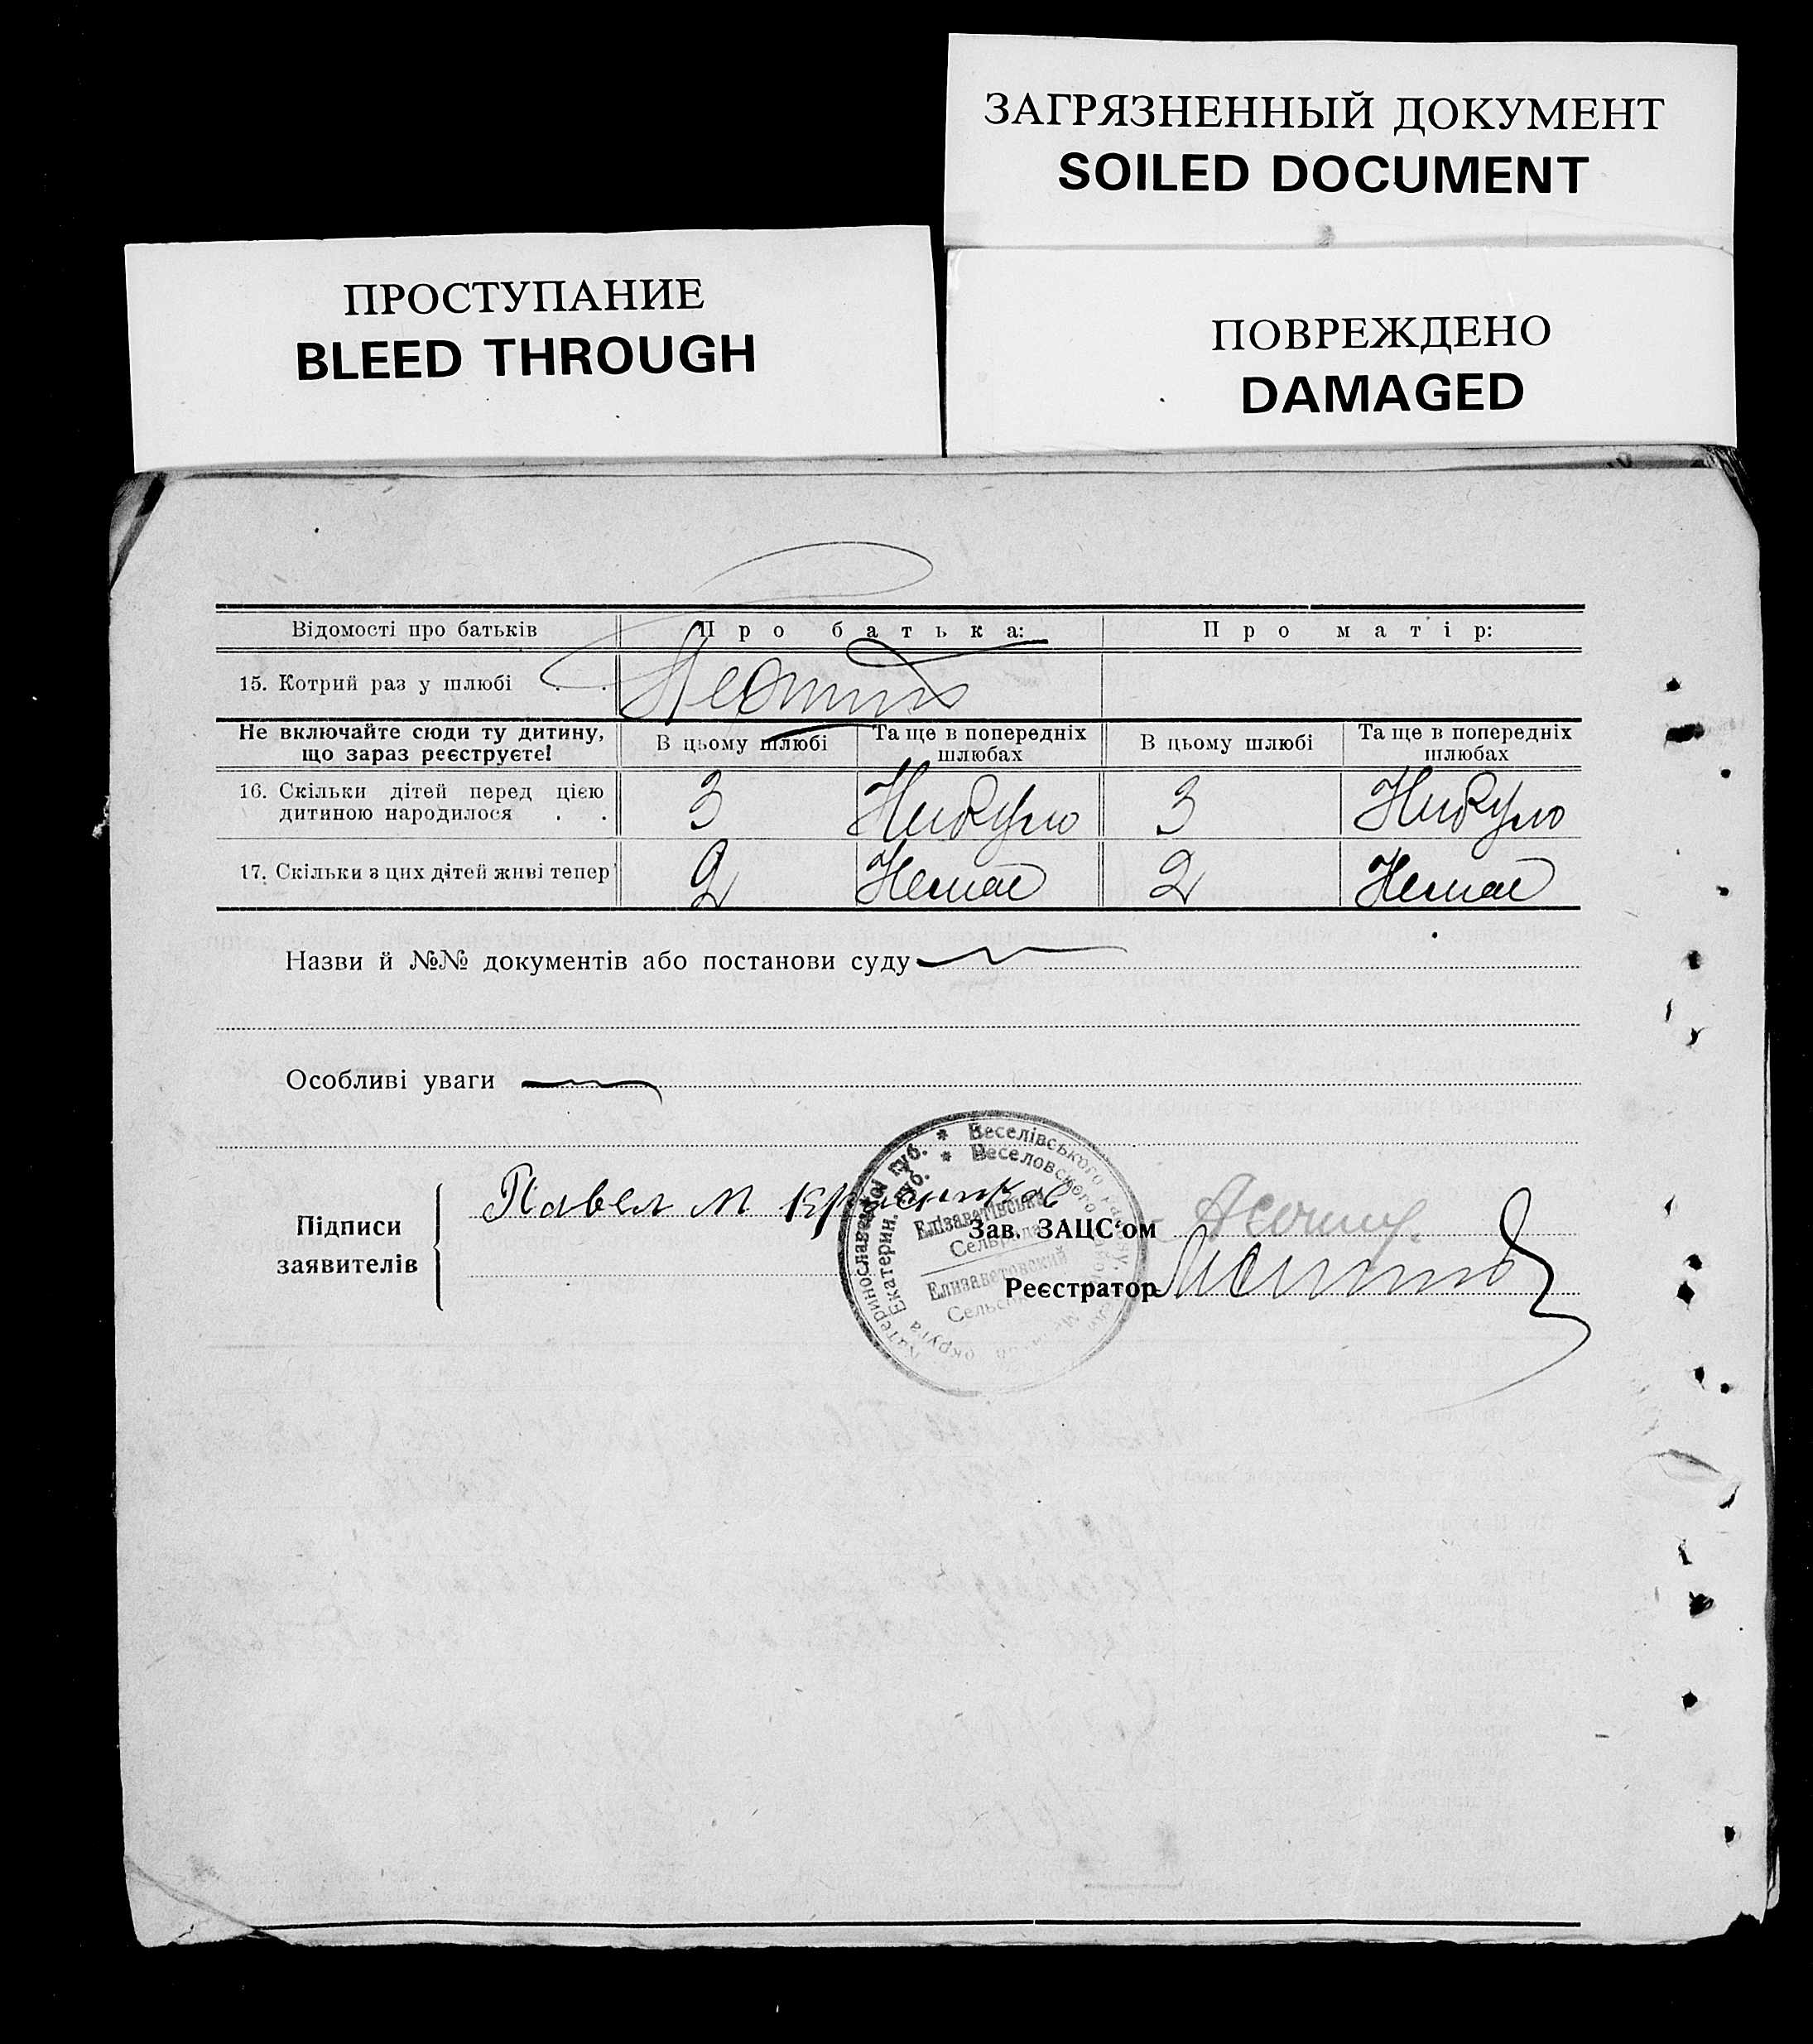 ЗАГРЯЗНЕННЫЙ ДОКУМЕНТ
SOILED DOCUMENT
ПРОСТУПАНИЕ
BLEED THROUGH
ПОВРЕЖДЕНО
DAMAGED
Відомості про батьків Про батька: Про матір:
15. Котрий раз у шлюбі . .
Не включайте сюди ту дитину, що зараз реєструєте! В цьому шлюбі Та ще в попередніх шлюбах В цьому шлюбі Та ще в попередніх шлюбах
16. Скільки дітей перед цією дитиною народилося . . 3 Нибуло 3 Нибуло
17. Скільки з цих дітей живі тепер 2 Немає 2 Немає
Назви й №№ документів або постанови суду
Особливі уваги
Підписи заявителів
Павел М
Зав. ЗАЦС‘ом
Реєстратор
* Веселівського
Катеринославської губ.
* Веселовского
округа Екатерин. губ.
Елізаветівська
Сельрада
Елизаветовский